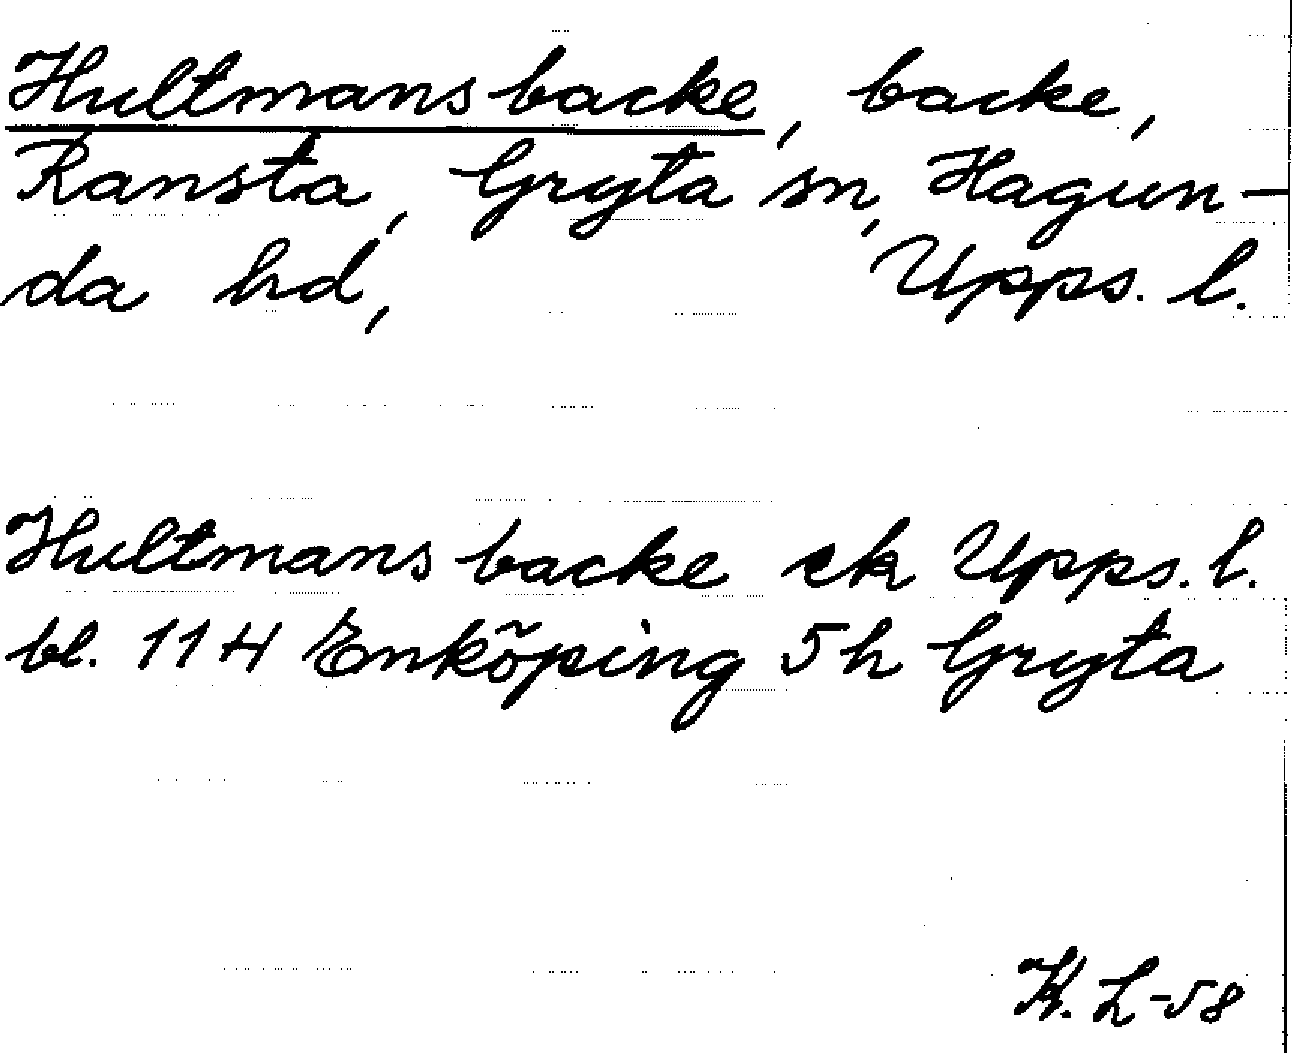 Hultmansbacke, backe,
Ransta, Gryta sn, Hagun-
da hd, Upps. l.
Hultmansbacke ek Upps. l.
bl. 114 Enköping 5h Gryta
K. L-58